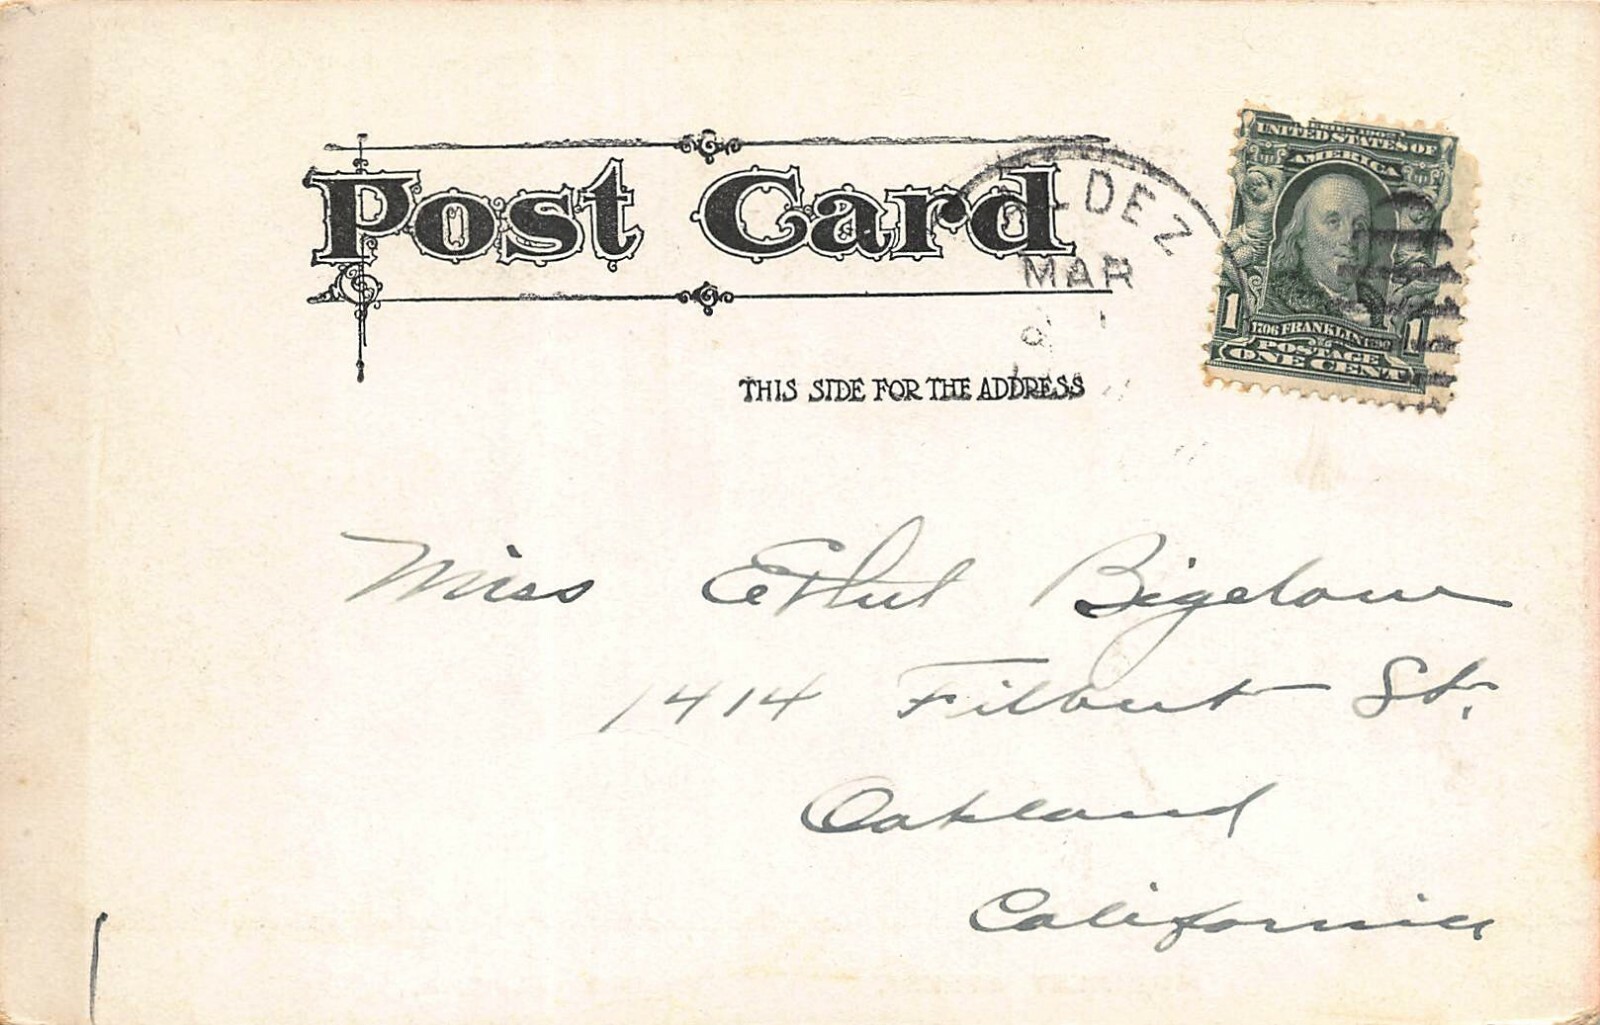 Post Card
THIS SIDE FOR THE ADDRESS
LDEZ
MAR
SERIES 1902
UNITED STATES OF
AMERICA
1 1706 FRANKLIN 1790 1
POSTAGE
ONE CENT
Miss Ethel Bigelow
1414 Filbert St.
Oakland
California